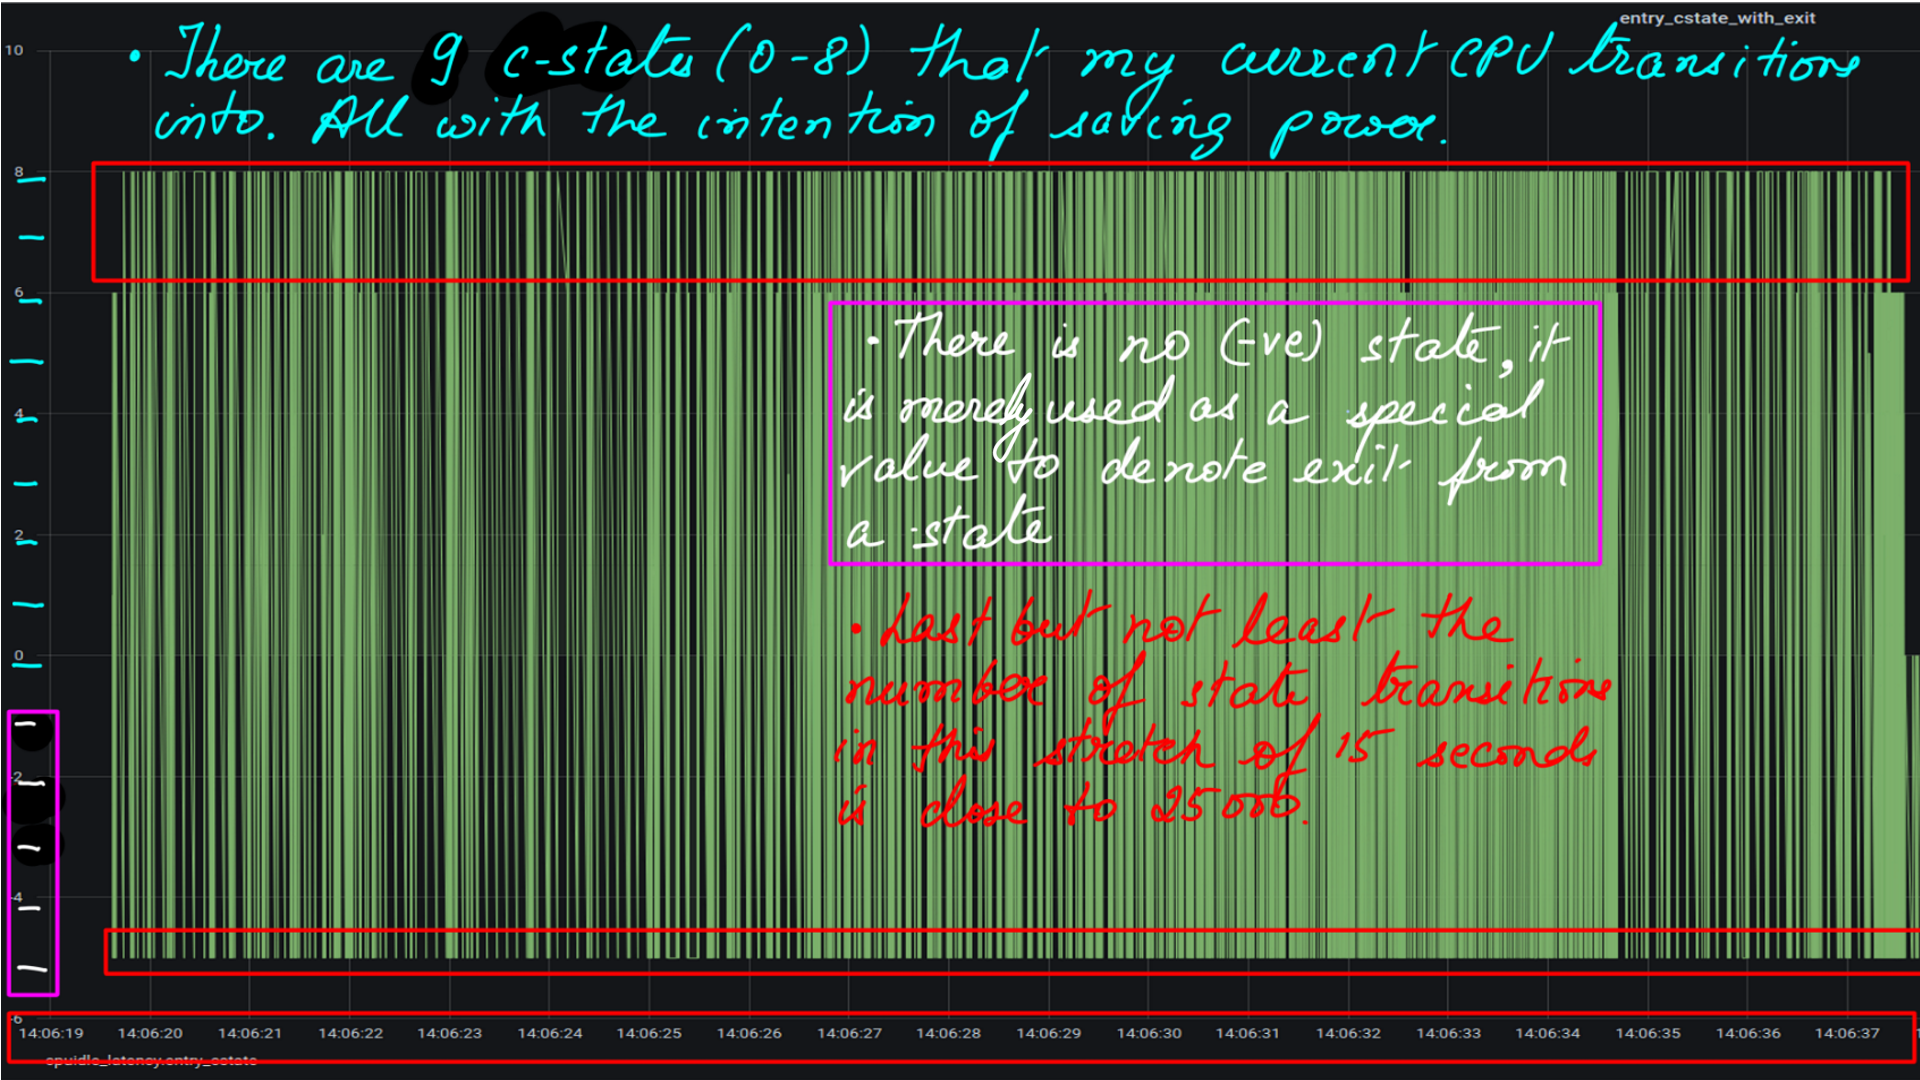 entry_cstate_with_exit
10
• There are 9 c-states (0-8) that my current CPU transitions
into. All with the intention of saving power.
8
6
• There is no (-ve) state, it
is merely used as a special
4
value to denote exit from
a state
2
• Last but not least the
0
number of state transitions
in this stretch of 15 seconds
-2
is close to 25000.
-4
-6
14:06:19 14:06:20 14:06:21 14:06:22 14:06:23 14:06:24 14:06:25 14:06:26 14:06:27 14:06:28 14:06:29 14:06:30 14:06:31 14:06:32 14:06:33 14:06:34 14:06:35 14:06:36 14:06:37
cpuidle_latency.entry_cstate